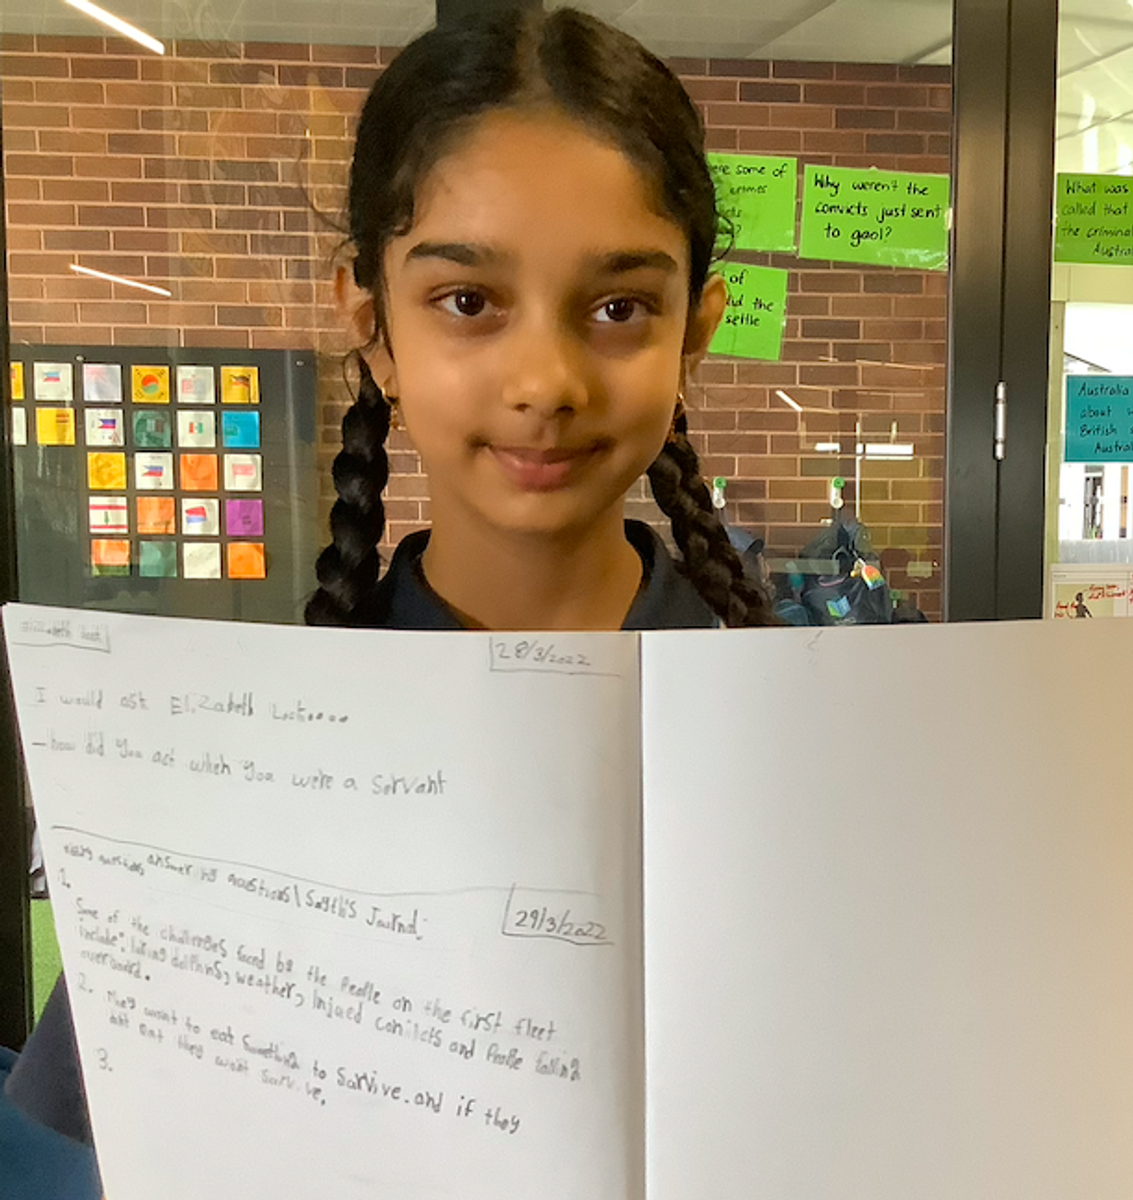 ere some of
crimes
?
Why weren't the
convicts just sent
to gaol?
of
did the
settle
What was
called that
the criminal
Austra
Australia
about w
British
Austral
28/3/2022
I would ask Elizabeth
- how did you act when you were a Servant
answering questions \ Journal
29/3/2022
1.
Some of the challenges faced by the People on the first fleet
include: dolphins, weather, injued and People falling
overboard.
2. They want to eat Something to Sarvive. and if they
eat they wont
3.